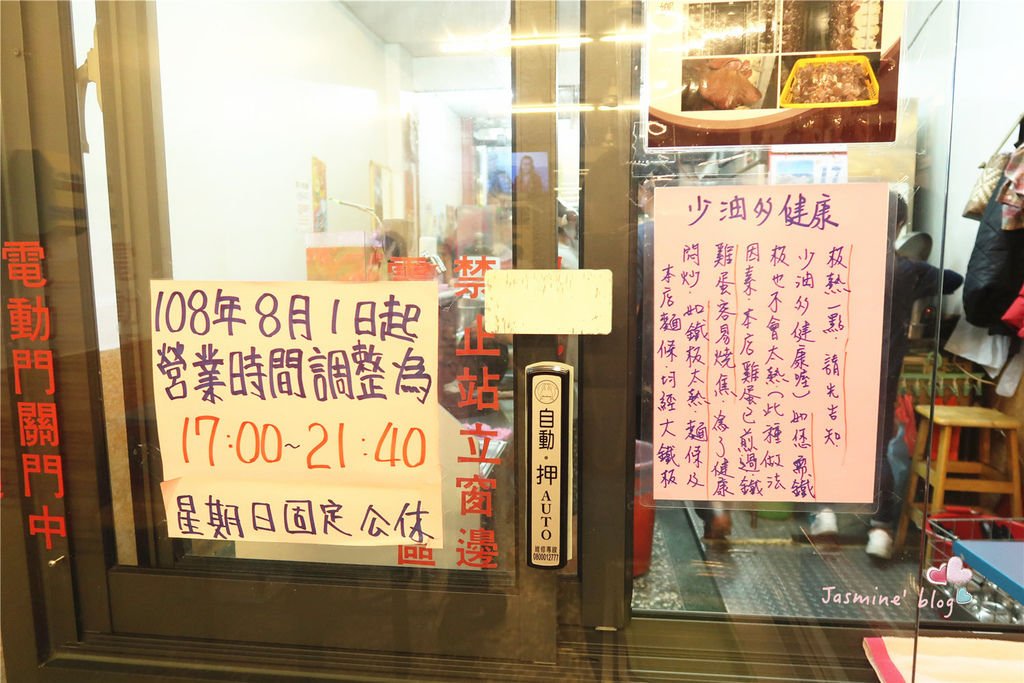 電動門關門中
108年8月1日起
營業時間調整為
17:00~21:40
星期日固定公休
禁止站立窗邊
區
自動·押
AUTO
維修專線
0800012777
17
少油多健康
本店麵條.均經大鐵板
悶炒.如鐵板太熱.麵條及
雞蛋容易燒焦.為了健康
因素.本店雞蛋已煎過.鐵
板也不會太熱(此種做法
少油多健康喔)如您需鐵
板熱一點.請先告知
Jasmine' blog